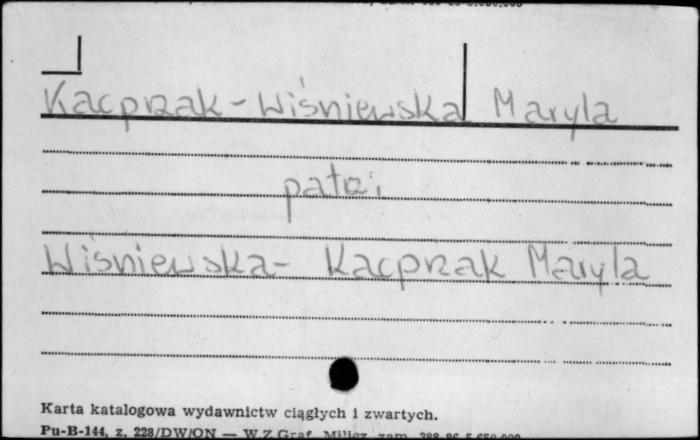 Kacprzak - Wiśniewska Maryla
patrz:
Wiśniewska - Kacprzak Maryla
Karta katalogowa wydawnictw ciągłych i zwartych.
Pu-B-144, z. 228/DW/ON — W.Z.Graf. Milicz, zam.